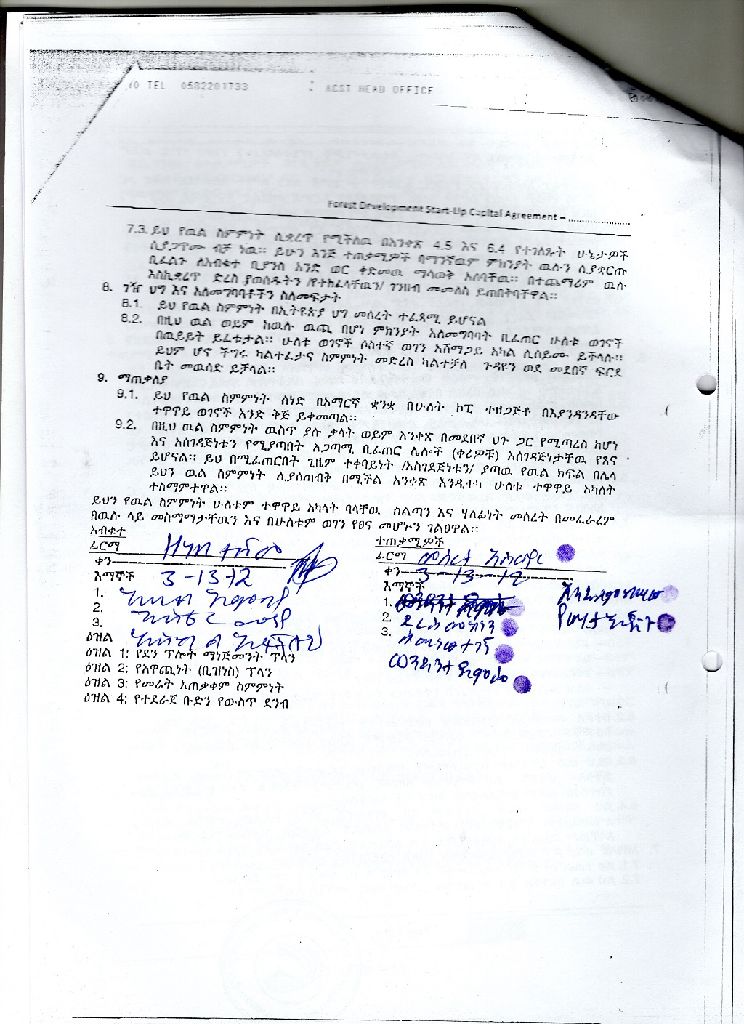 TEL 0582201733 : ACST HEAD OFFICE
Forest Development Start-Up Capital Agreement – ....................
7.3. ይህ የዉል ስምምነት ሊቋረጥ የሚችለዉ በአንቀጽ 4.5 እና 6.4 የተገለጹት ሁኔታዎች
ሲያጋጥሙ ብቻ ነዉ። ይሁን እንጅ ተጠቃሚዎች በማንኛዉም ምክንያት ዉሉን ሊያቋርጡ
ቢፈልጉ ለአብቁተ ቢያንስ አንድ ወር ቀድመዉ ማሳወቅ አለባቸዉ። በተጨማሪም ዉሉ
እስኪቋረጥ ድረስ ያወሰዱትን /የተከፈላቸዉን/ ገንዘብ መመለስ ይጠበቅባቸዋል።
8. ገዥ ህግ እና አለመግባባቶችን ስለመፍታት
8.1. ይህ የዉል ስምምነት በኢትዮጵያ ህግ መሰረት ተፈጻሚ ይሆናል
8.2. በዚህ ዉል ወይም ከዉሉ ዉጪ በሆነ ምክንያት አለመግባባት ቢፈጠር ሁለቱ ወገኖች
በዉይይት ይፈቱታል። ሁለቱ ወገኖች ሶስተኛ ወገን አሸማጋይ አካል ሊሰይሙ ይችላሉ።
ይህም ሆኖ ችግሩ ካልተፈታና ስምምነት መድረስ ካልተቻለ ጉዳዩን ወደ መደበኛ ፍርድ
ቤት መዉሰድ ይቻላል።
9. ማጠቃለያ
9.1. ይህ የዉል ስምምነት ሰነድ በአማርኛ ቋንቋ በሁለት ኮፒ ተዘጋጅቶ በእያንዳንዳቸው
ተዋዋይ ወገኖች እንድ ቅጅ ይቀመጣል።
9.2. በዚህ ዉል ስምምነት ዉስጥ ያሉ ቃላት ወይም አንቀጽ በመደበኛ ህጉ ጋር የሚጣረስ ከሆነ
እና አስገዳጅነቱን የሚያጣበት አጋጣሚ ቢፈጠር ሌሎች (ቀሪዎቹ) አስገዳጅነታቸዉ የጸና
ይሆናል። ይህ በሚፈጠርበት ጊዜም ተቀባይነት /አስገደጅነቱን/ ያጣዉ የዉል ክፍል በሌላ
ይህን ዉል ስምምነት ሊያሳካብት በሚችል አንቀጽ እንዲተካ ሁለቱ ተዋዋይ አካላት
ተስማምተዋል።
ይህን የዉል ስምምነት ሁለቱም ተዋዋይ አካላት ባላቸዉ ስልጣን እና ሃላፊነት መሰረት በመፈራረም
በዉሉ ላይ መስማማታቸዉን እና በሁለቱም ወገን የፀና መሆኑን ገልፀዋል።
አብቁተ
ፊርማ
ቀን 3-13-12
እማኞች
1.
2.
3.
ተጠቃሚዎች
ፊርማ
ቀን 3-13-12
እማኞች
1.
2.
3.
ዕዝል
ዕዝል 1: የደን ፕሎት ማኔጅመንት ፕላን
ዕዝል 2: የአዋጪነት (ቢዝነስ) ፕላን
ዕዝል 3: የመሬት አጠቃቀም ስምምነት
ዕዝል 4: የተደራጀ ቡድን የውስጥ ደንብ